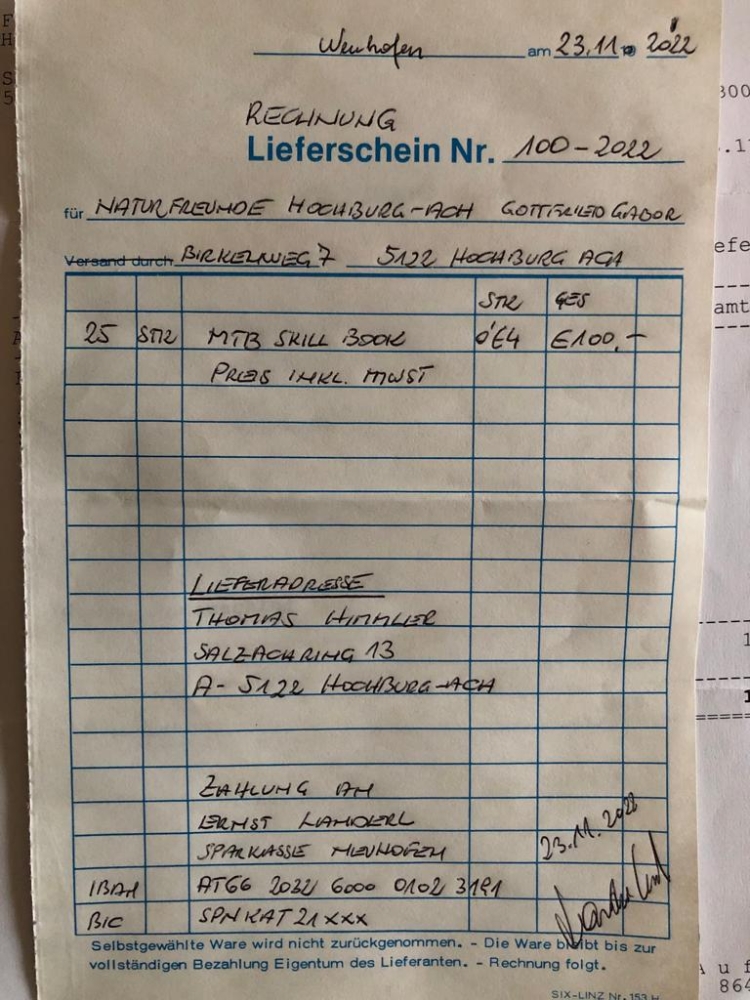 Neuhofen am 23.11. 2022
RECHNUNG
Lieferschein Nr. 100-2022
für NATURFREUNDE HOCHBURG-ACH GOTTFRIED GABOR
Versand durch BIRKENWEG 7 5122 HOCHBURG ACH
STK GES
25 STK MTB SKILL BOOK à €4 €100,-
PREIS INKL. MWST
LIEFERADRESSE
THOMAS
SALZACHRING 13
A-5122 HOCHBURG-ACH
ZAHLUNG AN
ERNST LANDERL
SPARKASSE NEUHOFEN
23.11.2022
IBAN AT66 2032 6000 0102 3191
BIC SPNKAT21XXX
Selbstgewählte Ware wird nicht zurückgenommen. - Die Ware bleibt bis zur
vollständigen Bezahlung Eigentum des Lieferanten. - Rechnung folgt.
SIX-LINZ Nr. 153 H